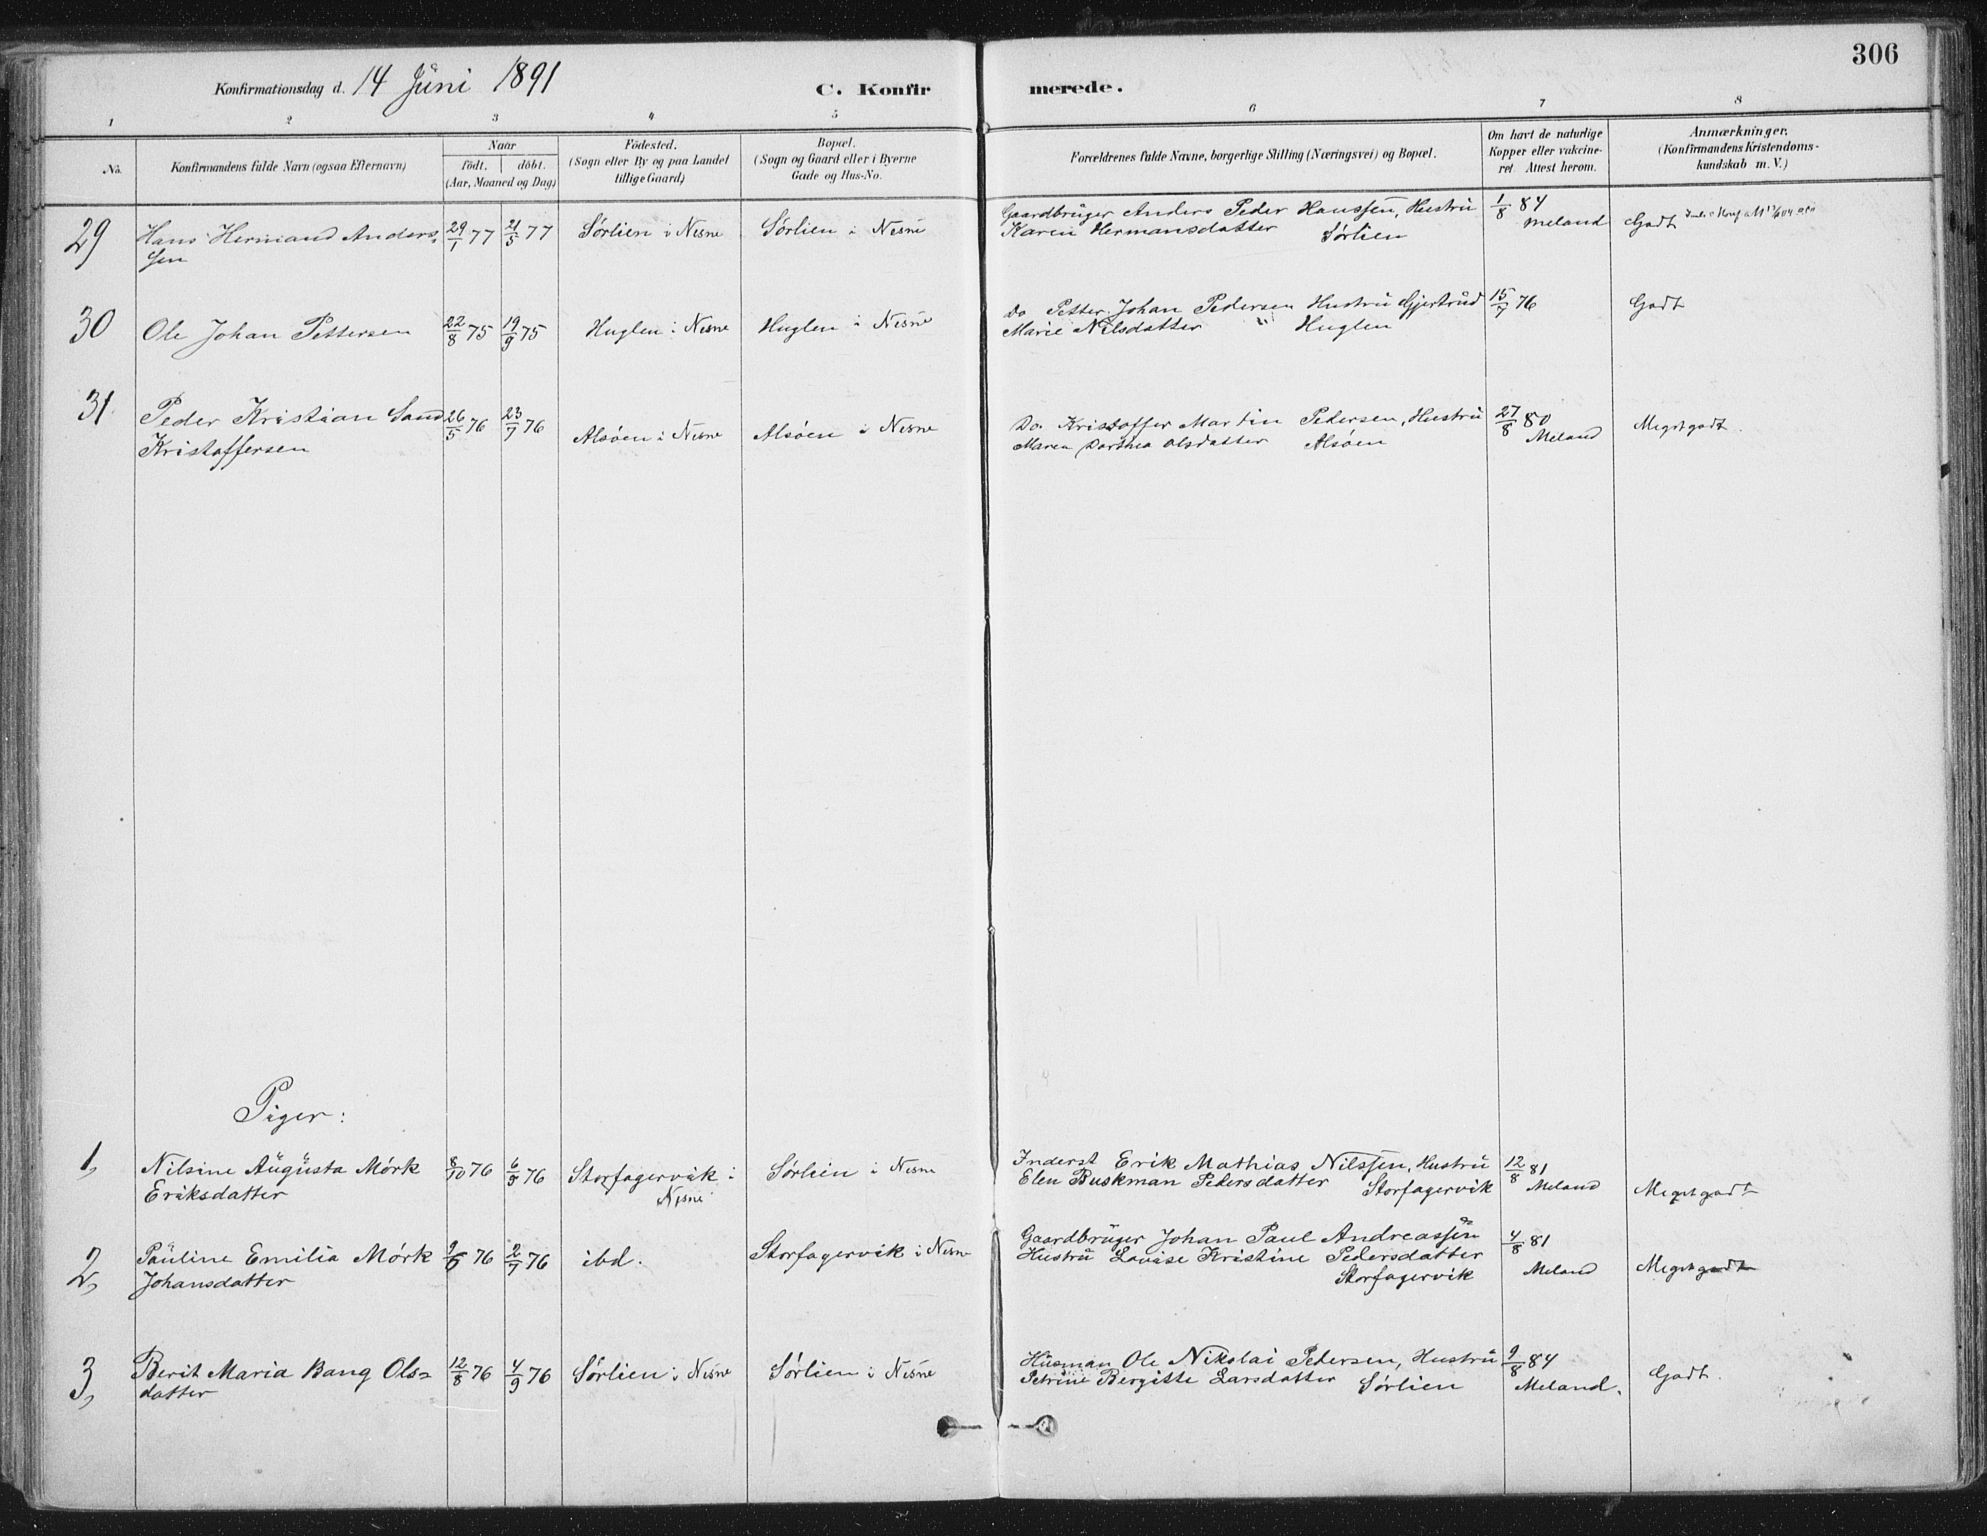 306
Konfirmationsdag d. 14 Juni 1891
C. Konfir
merede.
1 2 3 4 5 6 7 8
No.
Konfirmandens fulde Navn (ogsaa Efternavn)
Naar
födt. döbt.
(Aar, Maaned og Dag)
Födested.
(Sogn eller By og paa Landet
tillige Gaard)
Bopæl.
(Sogn og Gaard eller i Byerne
Gade og Hus-No.
Forældrenes fulde Navne, borgerlige Stilling (Næringsvei) og Bopæl.
Om havt de naturlige
Kopper eller vakcine-
ret Attest herom.
Anmærkninger.
(Konfirmandens Kristendoms-
kundskab m. V.)
29 Hans Hermand Anders-
sen
29/1 77 21/5 77 Sørlien i Nesne Sørlien i Nesne
Gaardbruger Anders Peder Hanssen, Hustru
Karen Hermansdatter Sørlien
1/8 84
Meland
Godt
30 Ole Johan Pettersen 22/8 75 19/9 75 Huglen i Nesne Huglen i Nesne
Do Petter Johan Pedersen Hustru Gjertrud
Marie Nilsdatter Huglen
15/7 76 Godt
31 Peder Kristian Sand
Kristoffersen
26/5 76 23/7 76 Alsøen i Nesne Alsøen i Nesne
Do. Kristoffer Martin Pedersen, Hustru
Maren Dorthea Olsdatter Alsøen
27/8 80
Meland
Megetgodt.
Piger:
1, Nilsine Augusta Mórk
Eriksdatter
8/10 76 76 Storfagervik i
Nesne
Sørlien i Nesne
Inderst Erik Mathias Nilssen, Hustru
Elen Buskman Pedersdatter Storfagervik
12/8 81
Meland
Megetgodt
2, Pauline Emilia Mórk
Johansdatter
76 2/7 76 ibd. Storfagervik i Nesne
Gaardbruger Johan Paul Andreassen
Hustru Lovise Kristine Pedersdatter
Storfagervik
4/8 81
Meland
Megetgodt
3, Berit Maria Bang Ols-
datter
12/8 76 4/9 76 Sørlien i Nesne Sørlien i Nesne
Husman Ole Nikolai Pedersen, Hustru
Petrine Bergitte Larsdatter Sørlien
9/8 84
Meland.
Godt.